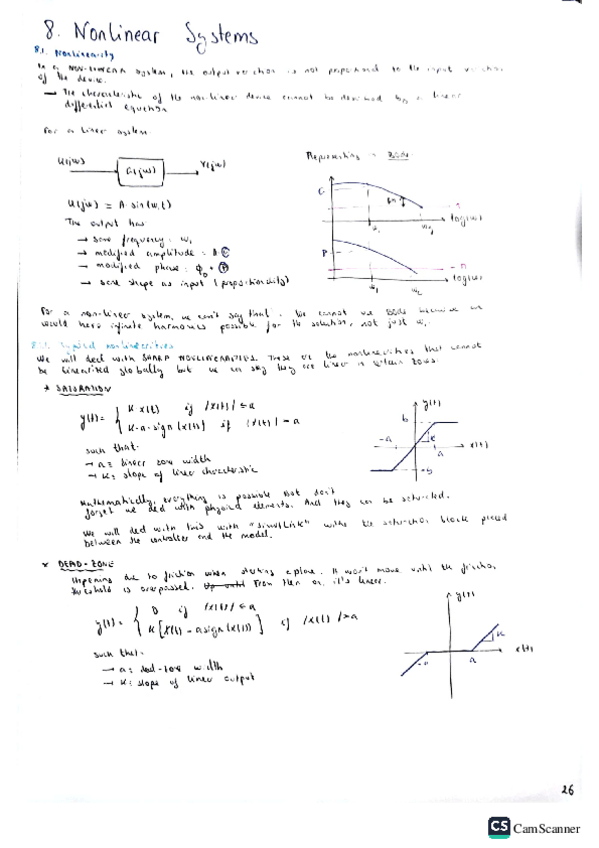 8. Nonlinear Systems
8.1. Nonlinearity
In a NON-LINEAR system, the output variation is not proportional to the input variation
of the device.
→ The characteristic of the non-linear device cannot be described by a linear
differential equation
For a linear system:
U(jω) G(jω) Y(jω)
Representing in BODE:
U(jω) = A·sin(ω,t)
The output has:
→ same frequency: ω,
→ modified amplitude: A·G
→ modified phase: φ₀ + P
→ same shape as input (proportionality)
G
ω₁ ω₂ log(ω)
P
-π
ω₁ ω₂ log(ω)
For a non-linear system, we can't say that. We cannot use BODE because we
would have infinite harmonics possible for the solution, not just ω₁.
typical nonlinearities
We will deal with SHARP NONLINEARITIES. These are the nonlinearities that cannot
be linearized globally but we can say they are linear in certain zones.
* SATURATION
y(t) = { K·x(t) if |x(t)| ≤ a
K·a·sign(x(t)) if |x(t)| > a
such that:
→ a = linear zone width
→ K = slope of linear characteristic
y(t)
b
-a
K
a
x(t)
-b
Mathematically, everything is possible but don't
forget we deal with physical elements. And they can be saturated.
We will deal with this with "SIMULINK" with the saturation block placed
between the controller and the model.
* DEAD-ZONE
Happening due to friction when starting a plane. It won't move until the friction
threshold is overpassed. Up until From then on, it's linear.
y(t) = { 0 if |x(t)| ≤ a
K[x(t) - a sign(x(t))] if |x(t)| > a
such that:
→ a = dead-zone width
→ K = slope of linear output
y(t)
K
-a
a
x(t)
26
CS CamScanner